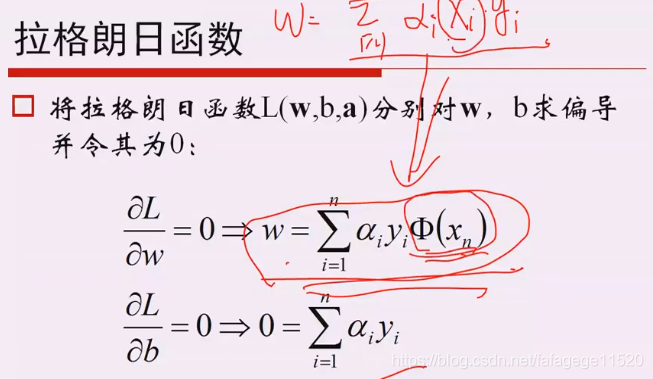 W = Σ αi(xi)yi
i=1
拉格朗日函数
将拉格朗日函数L(w,b,a)分别对w，b求偏导
并令其为0：
∂L/∂w = 0 ⇒ w = ∑_{i=1}^{n} α_i y_i Φ(x_n)
∂L/∂b = 0 ⇒ 0 = ∑_{i=1}^{n} α_i y_i
https://blog.csdn.net/lafagege11520